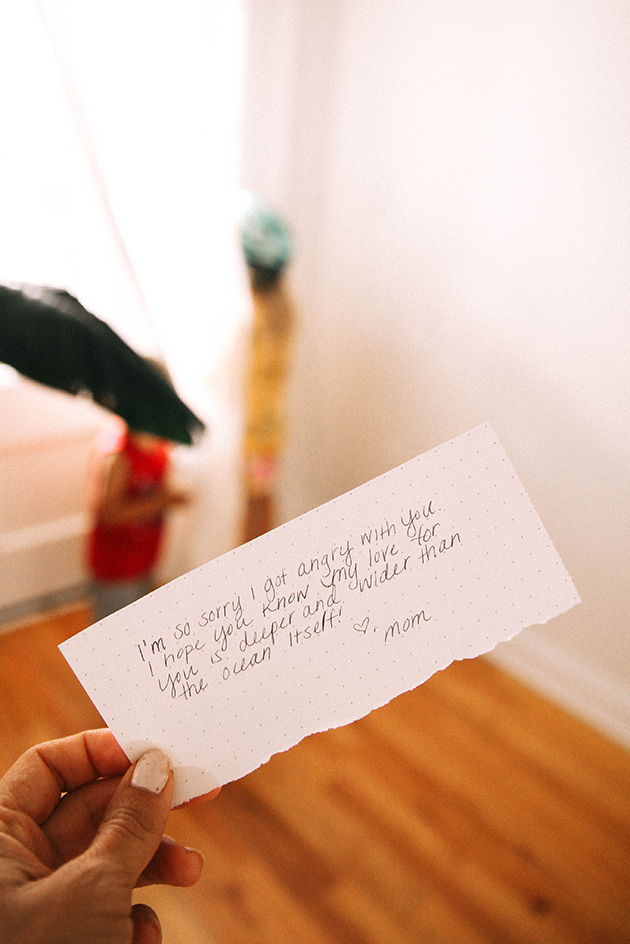 I'm so sorry I got angry with you.
I hope you know my love for
you is deeper and wider than
the ocean itself!
♡, mom